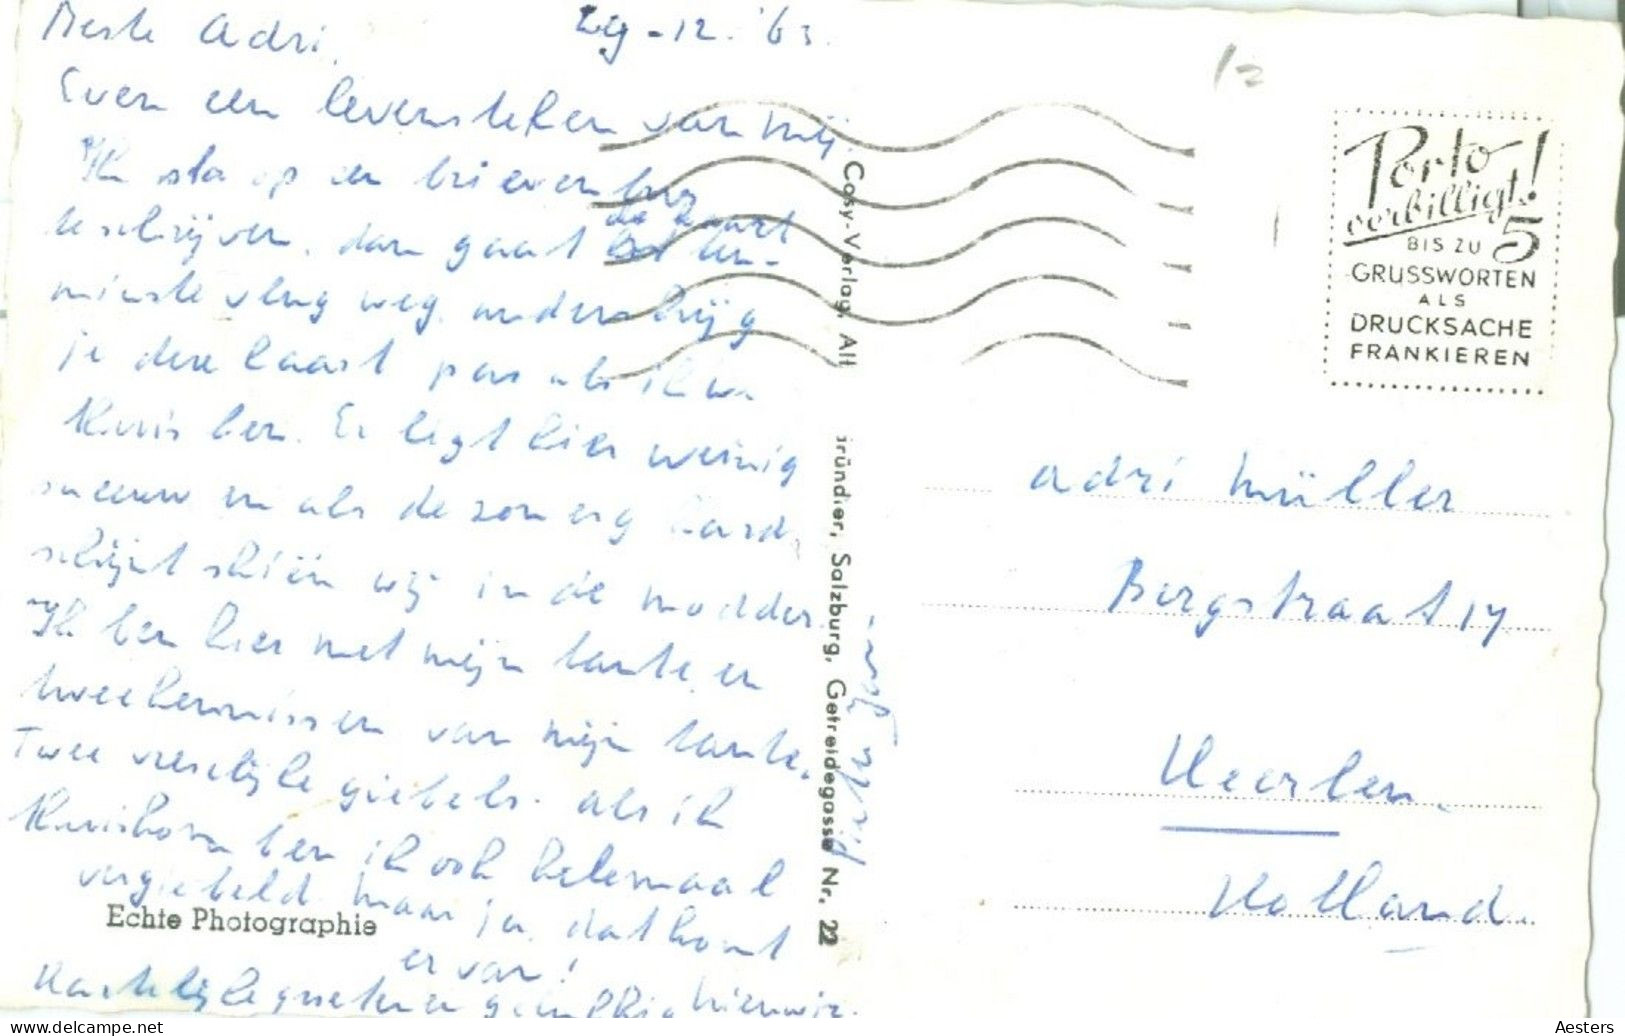 Beste Adri,
29-12-'63.
Even een levensteken van mij.
Ik sta op een brievenbus
te schrijven, dan gaat de kaart ten-
minste vlug weg, anders krijg
je deze kaart pas als ik
thuis ben. Er ligt hier weinig
sneeuw en als de zon erg hard
schijnt skiën wij in de modder.
Ik ben hier met mijn tante en
twee kennissen van mijn tante.
Twee vreselijke giebels. Als ik
thuiskom ben ik ook helemaal
vergiebeld. Maar ja, dat komt
er van!
Hartelijke groeten en gelukkig nieuwjr.
12
Porto
verbilligt!
BIS ZU 5
GRUSSWORTEN
ALS
DRUCKSACHE
FRANKIEREN
Cosy-Verlag, Alf Gründler, Salzburg, Getreidegasse Nr. 22
Adri Müller
Bergstraat 17
Heerlen
Holland.
Echte Photographie
Aesters